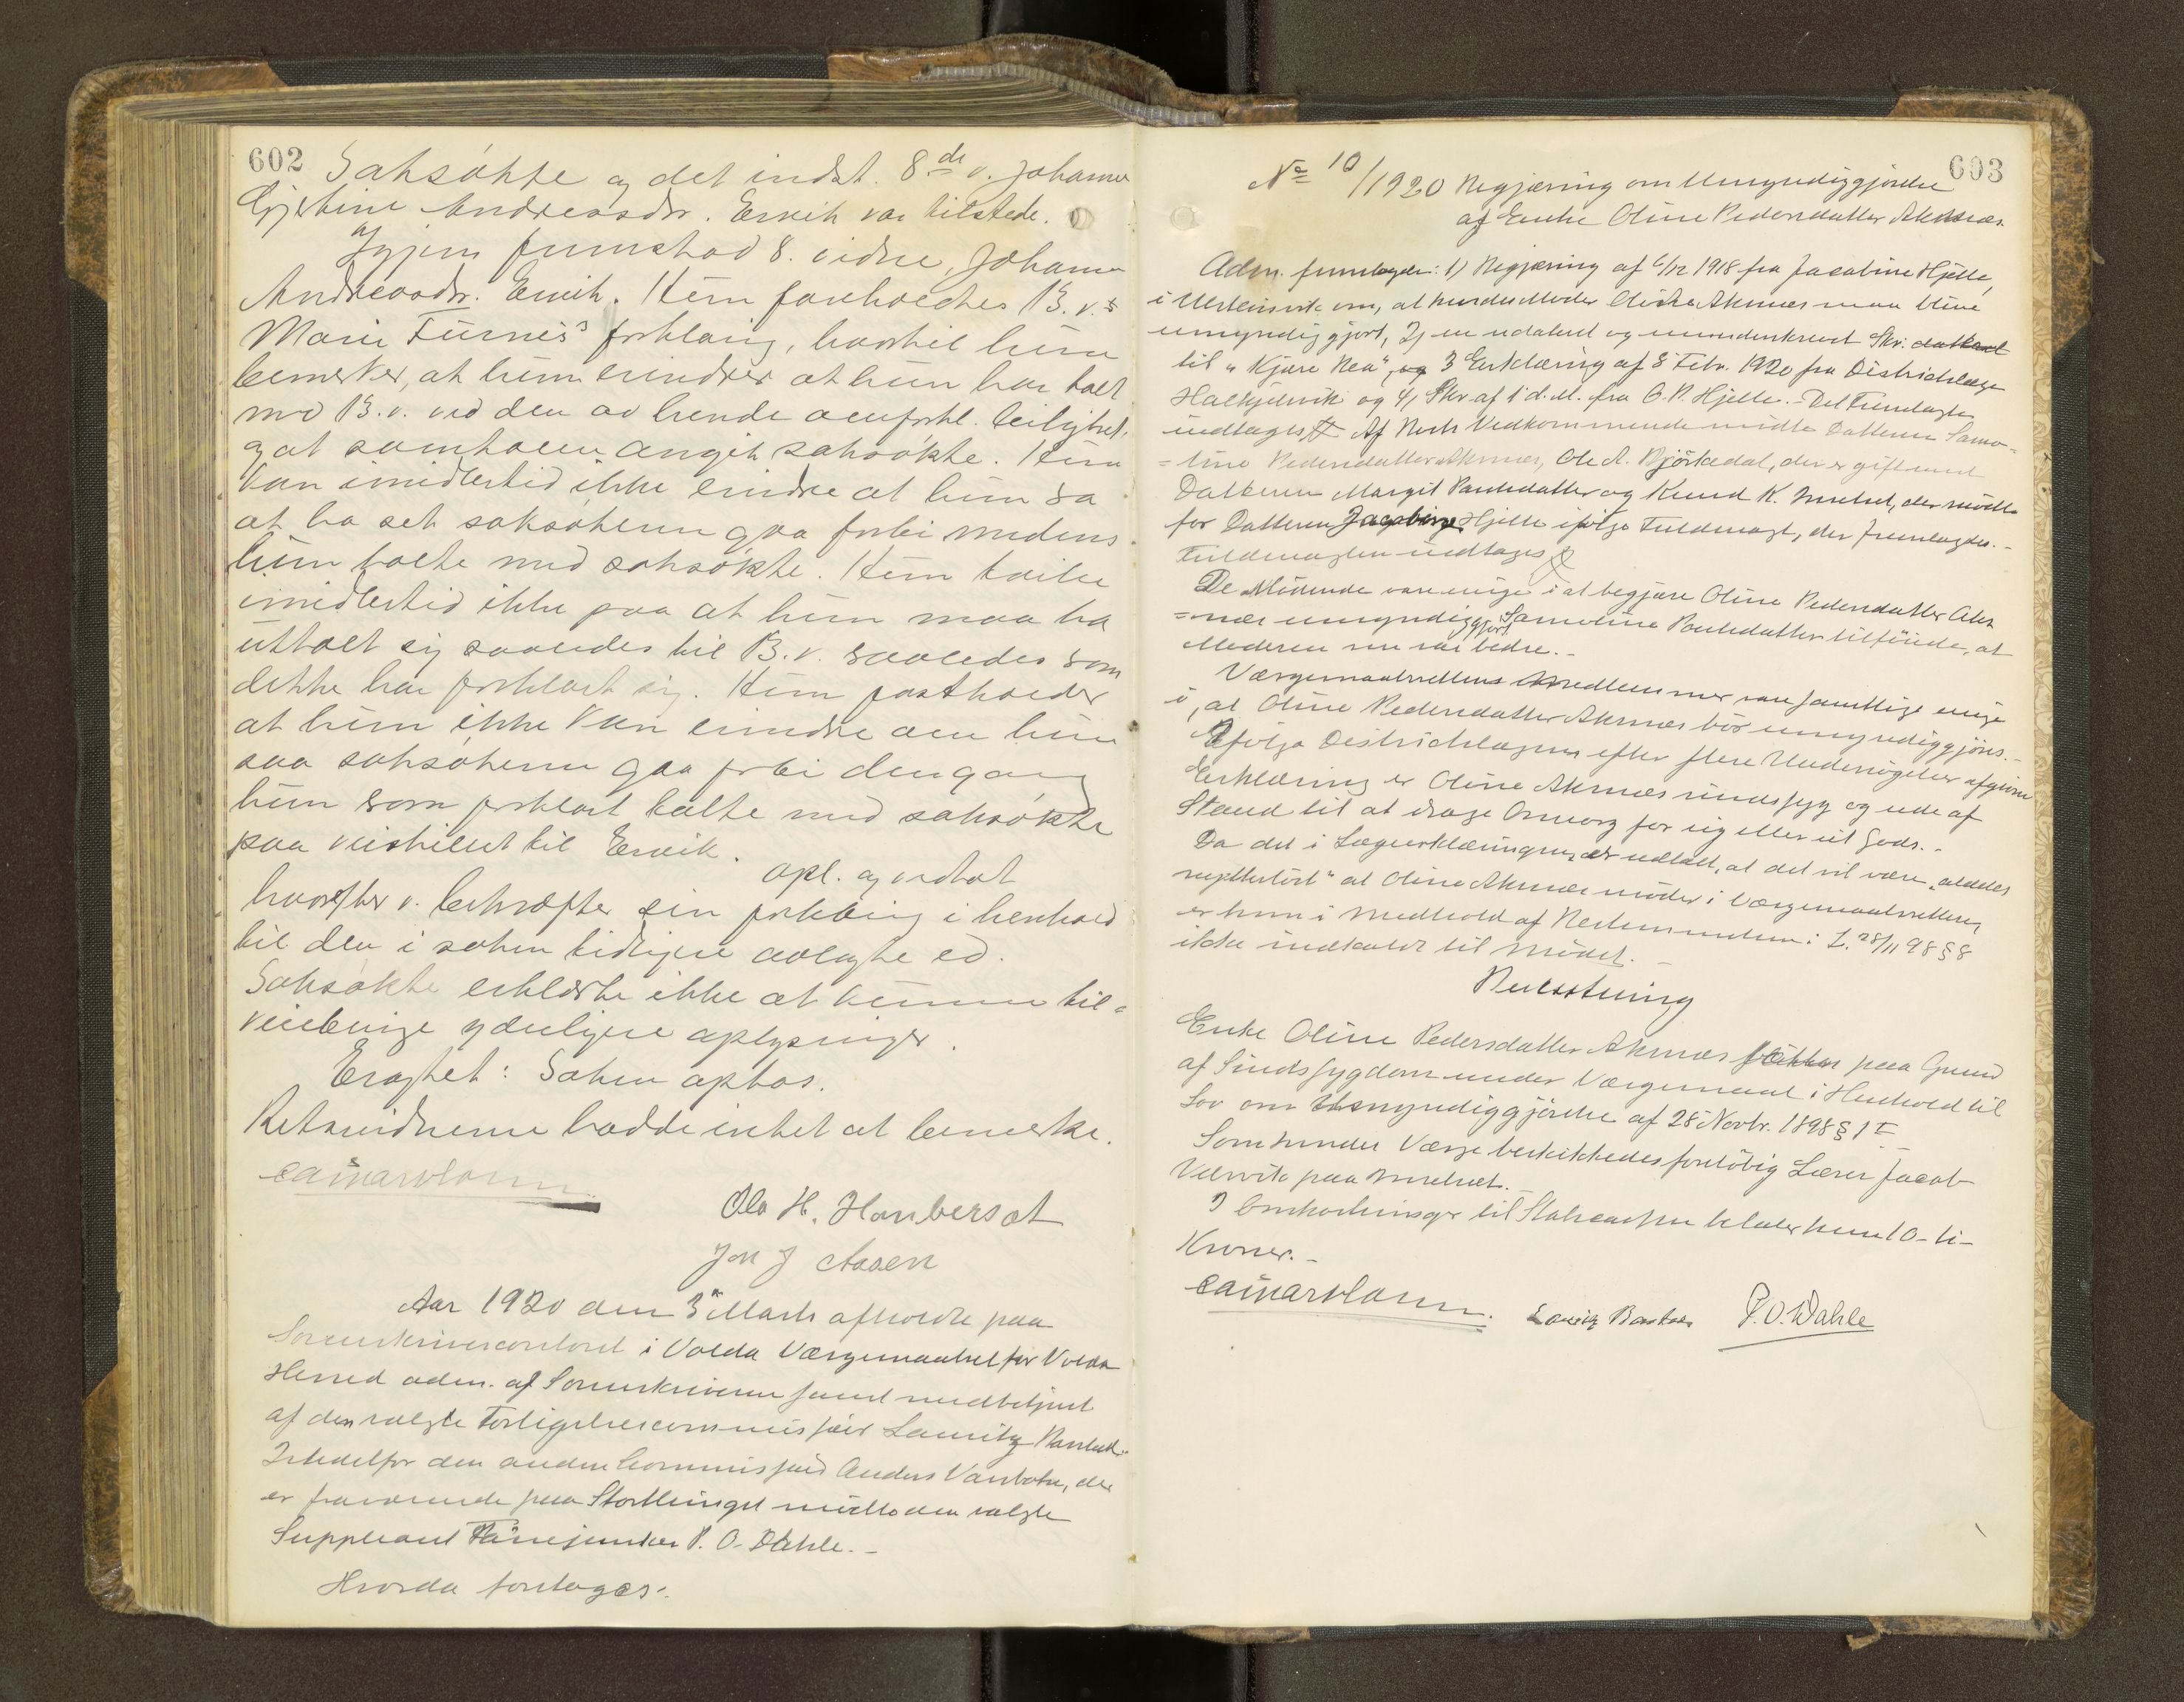 602
Saksøkte og det indst. 8de v. Johanne
Gjertine Andreasdr. Ervik var tilstede.
Igjen fremstod 8. vidne, Johanne
Andreasdr. Ervik. Hun foreholdtes B.v.s
Marie Furnes's forklaring, hvortil hun
bemerker, at hun erindrer at hun har talt
med B.v. ved den av hende omforkl. leilighet,
og at samtalen angik saksøkte. Hun
kan imidlertid ikke erindre at hun sa
at ha set saksøkeren gaa forbi medens
hun talte med saksøkte. Hun tviler
imidlertid ikke paa at hun maa ha
uttalt sig saaledes til B.v. saaledes som
dette har forklart sig. Hun fastholder
at hun ikke kan erindre om hun
saa saksøkeren gaa forbi dengang
hun som forklart talte med saksøkte
paa veiskillet til Ervik.
opl. og vedtat
hvorefter v. bekræfter sin forklaring i henhold
til den i saken tidligere avlagte ed.
Saksøkte erklærte ikke at kunne til-
veiebringe yderligere oplysninger.
Eragtet: Saken optas.
Retsvidnerne hadde intet at bemerke.
Ola H. Haubersat
Jon J Aasen
Aar 1920 den 3 Marts afholdtes paa
Sorenskrivercontoret i Volda Værgemaalsret for Volda
Herred adm. af Sorenskriveren samt medbetjent
af den valgte Forligelsescommissær Lauritz
Istedetfor den anden Commissær Anders Vassbotn, der
er fraværende paa Storthinget mødte den valgte
Suppleant P. O. Dahle.-
Hvorda foretages:
603
No 10/1920 Begjæring om Umyndiggjørelse
af Enke Oline Pedersdatter Aksnes.
Adm. fremlagde: 1) Begjæring af 6/12 1918 fra Jacobine Hjelle,
i om, at hendes Moder Oline Aksnes maa blive
umyndiggjort, 2) en udateret og ununderskrevet Skr:
til "Kjære Bea", og 3 Erklæring af 8 Febr. 1920 fra Distriktslæge
og 4) Skr af 1 d. M. fra O. P. Hjelle.- Det Fremlagte
indtages Af Rets Vedkommende mødte Datteren Samo-
=line Pedersdatter Aksnes, Ole A. Bjørkedal, der er gift med
Datteren Margit Paulsdatter og Knud K. der mødte
for Datteren Jacobine Hjelle ifølge Fuldmagt, der fremlagdes.-
Fuldmagten indtages
De Mødende var enige i at begjære Oline Pedersdatter Aks
=nes umyndiggjort Samoline Paulsdatter tilføiede, at
Moderen nu var bedre.-
Værgemaalsrettens Medlemmer var samtlige enige
i, at Oline Pedersdatter Aksnes bør umyndiggjøres.-
Ifølge Distriktslægens efter flere Undersøgelser afgivne
Erklæring er Oline Aksnes sindssyg og ude af
Stand til at drage Omsorg for sig eller sit Gods.-
Da det i Lægeerklæringen er udtalt, at det vil være "aldeles
nyttesløst" at Oline Aksnes møder i Værgemaalsretten,
er hun i Medhold af Bestemmelsen i L. 28/11 98 § 8
ikke indkaldt til Mødet.-
Beslutning
Enke Oline Pedersdatter Aksnes sættes paa Grund
af Sindssygdom under Værgemaal i Henhold til
Lov om Umyndiggjørelse af 28 Novbr. 1898 § 1
Som hendes Værge beskikkedes foreløbig Lærer Jacob
paa
I Omkostninger til Statscassen betaler hun 10- ti-
Kroner.-
P. O. Dahle